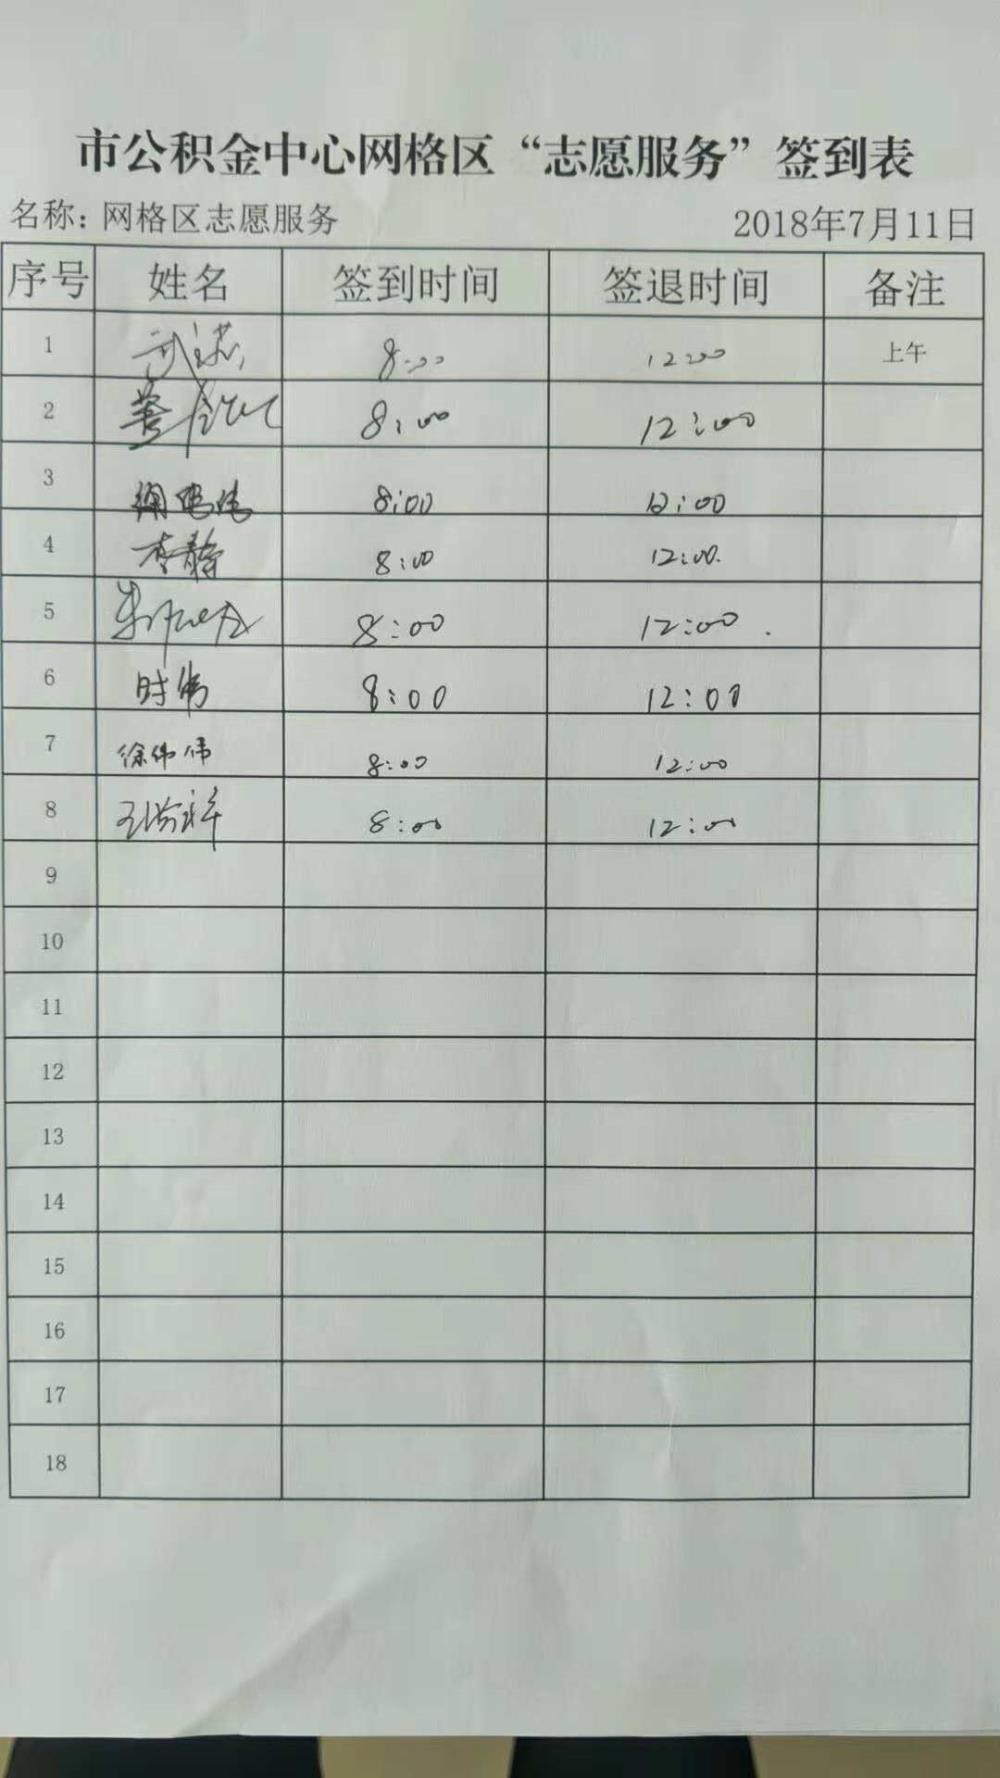 市公积金中心网格区“志愿服务”签到表
名称：网格区志愿服务 2018年7月11日
序号 姓名 签到时间 签退时间 备注
1 8:00 12:00 上午
2 8:00 12:00
3 8:00 12:00
4 李静 8:00 12:00.
5 8:00 12:00.
6 时伟 8:00 12:00
7 徐伟伟 8:00 12:00
8 8:00 12:00
9
10
11
12
13
14
15
16
17
18